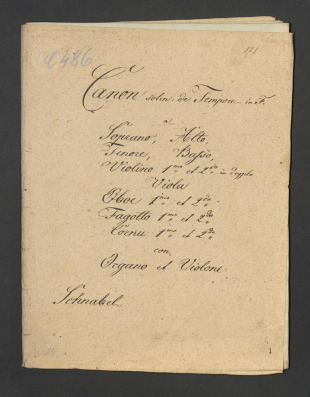 C486
171
Canon solen: de Tempore in F.
a
Soprano, Alto,
Tenore, Basso,
Violino 1mo et 2do in dupplo
Viola
Oboe 1mo et 2do
Fagotto 1mo et 2do
Cornu 1mo et 2do
con
Organo et Violone.
Schnabel
1